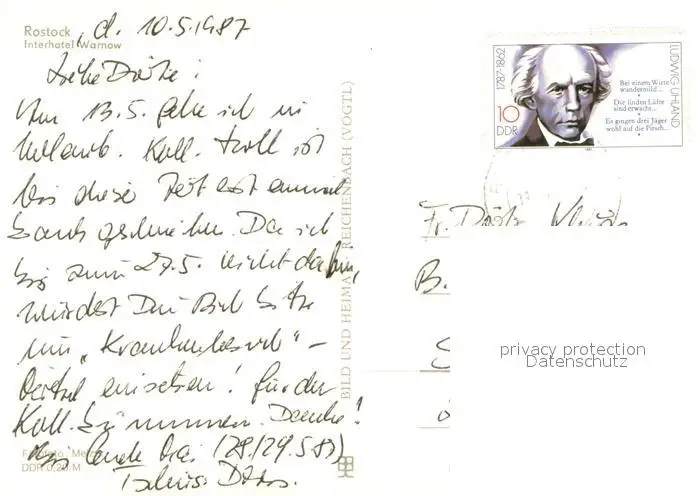 Rostock
Interhotel Warnow
, d. 10.5.1987
Liebe Dörte!
Am 13.5. gehe ich in
Urlaub. Koll. Troll ist
bis dieser Zeit erst einmal
krank geschrieben. Da ich
bis zum 27.5. nicht da bin,
würdest Du Dich bitte
um „Krankenbesuch" –
einsetzen! für den
Koll. kümmern. Danke!
Ende (28./29.5.87)
Foto: 
DDR 0,20 M
BILD UND HEIMAT REICHENBACH (VOGTL)
1787-1862
LUDWIG UHLAND
Bei einem Wirte
wundermild...
Die linden Lüfte
sind erwacht...
Es gingen drei Jäger
wohl auf die Pirsch...
10
DDR
Fr. Dörte
B.
privacy protection
Datenschutz